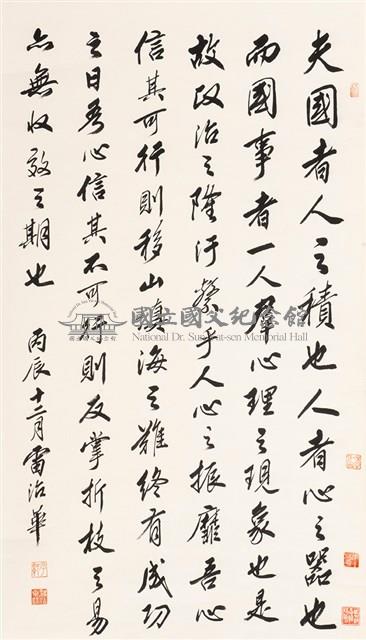 夫國者人之積也人者心之器也
而國事者一人羣心理之現象也是
故政治之隆汙繫乎人心之振靡吾心
信其可行則移山填海之難終有成功
之日吾心信其不可行則反掌折枝之易
亦無收效之期也
丙辰十二月雷治華
國立國父紀念館
National Dr. Sun Yat-sen Memorial Hall